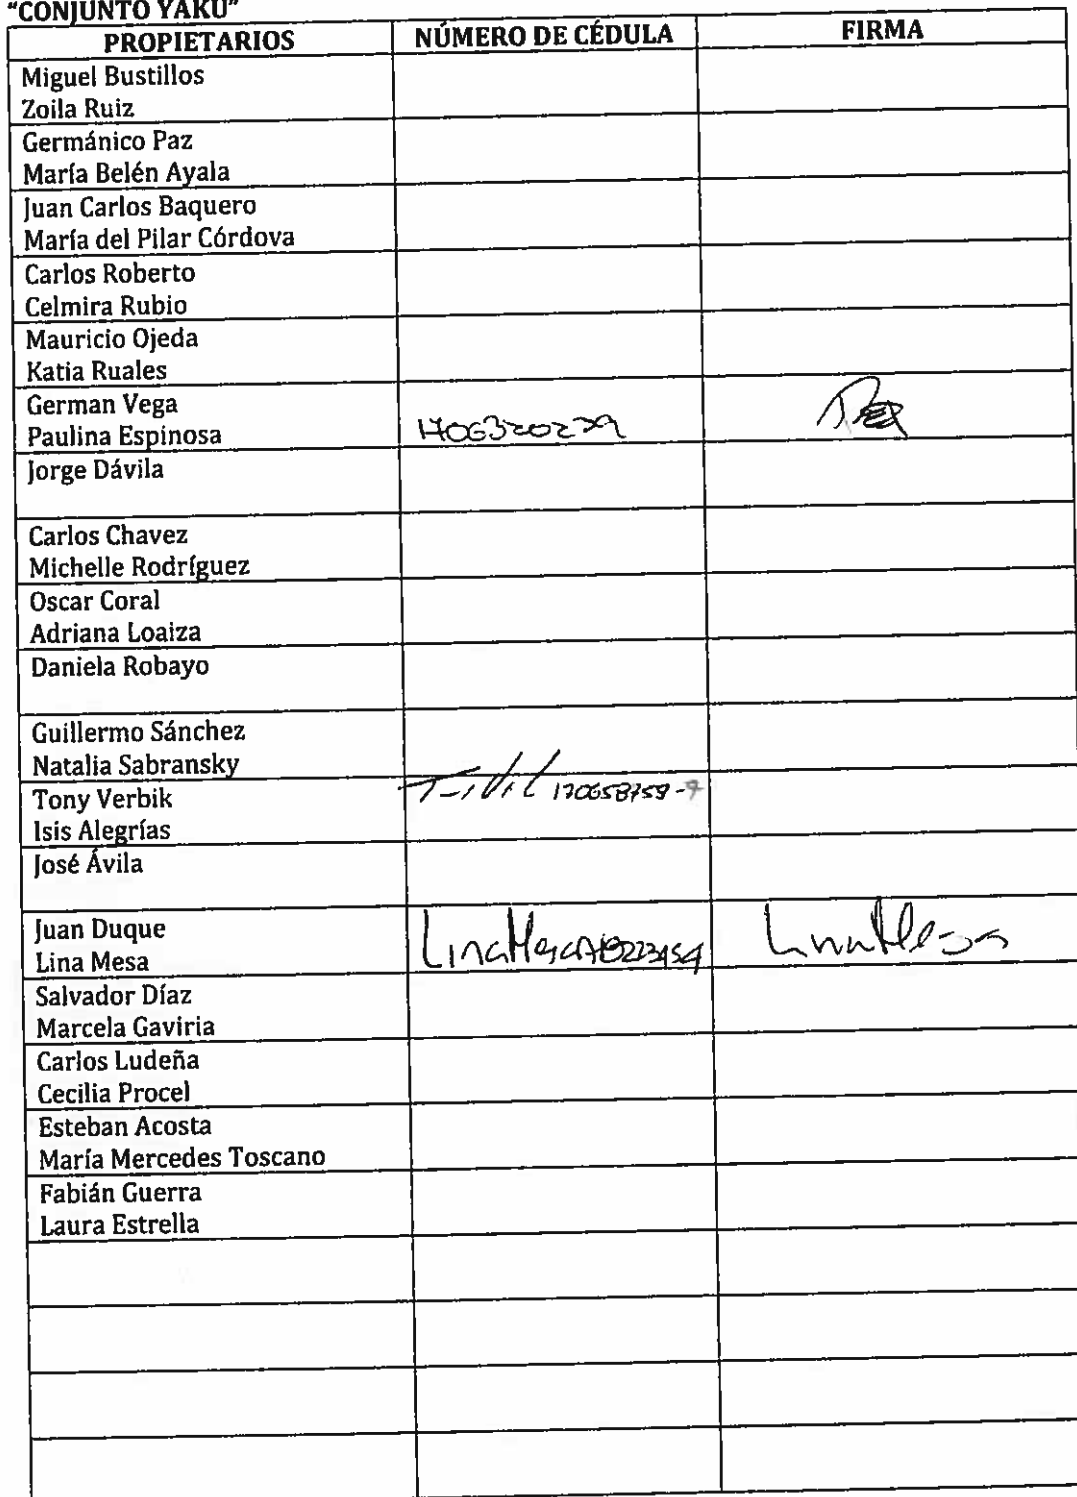 "CONJUNTO YAKU"
PROPIETARIOS NÚMERO DE CÉDULA FIRMA
Miguel Bustillos
Zoila Ruiz
Germánico Paz
María Belén Ayala
Juan Carlos Baquero
María del Pilar Córdova
Carlos Roberto
Celmira Rubio
Mauricio Ojeda
Katia Ruales
German Vega
Paulina Espinosa 1706320239
Jorge Dávila
Carlos Chavez
Michelle Rodríguez
Oscar Coral
Adriana Loaiza
Daniela Robayo
Guillermo Sánchez
Natalia Sabransky
Tony Verbik 170658759-9
Isis Alegrías
José Ávila
Juan Duque
Lina Mesa Lina Mesa Lina Mesa
Salvador Díaz
Marcela Gaviria
Carlos Ludeña
Cecilia Procel
Esteban Acosta
María Mercedes Toscano
Fabián Guerra
Laura Estrella